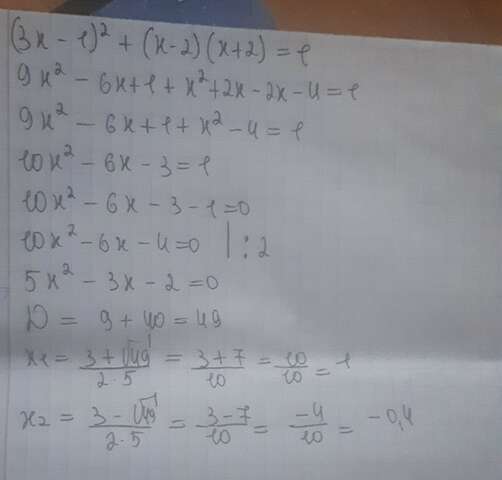 (3x - 1)² + (x-2)(x+2) = 1
9x² - 6x+1 + x²+2x-2x-4=1
9x² - 6x+1+x²-4=1
10x² - 6x - 3 = 1
10x² - 6x - 3 - 1 = 0
10x² - 6x - 4 = 0 | : 2
5x² - 3x - 2 = 0
D = 9 + 40 = 49
x₁ = (3+√49)/(2·5) = (3+7)/10 = 10/10 = 1
x₂ = (3-√49)/(2·5) = (3-7)/10 = -4/10 = -0,4